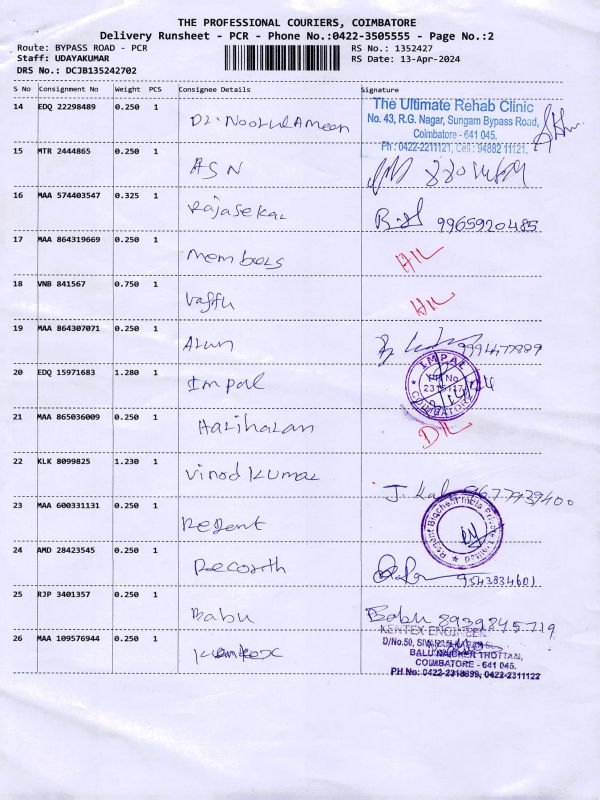 THE PROFESSIONAL COURIERS, COIMBATORE
Delivery Runsheet - PCR - Phone No.:0422-3505555 - Page No.:2
Route: BYPASS ROAD - PCR RS No.: 1352427
Staff: UDAYAKUMAR RS Date: 13-Apr-2024
DRS No.: DCJB135242702
S No Consignment No Weight PCS Consignee Details Signature
14 EDQ 22298489 0.250 1 Dr. Noorul Ameen The Ultimate Rehab Clinic
No. 43, R.G. Nagar, Sungam Bypass Road,
Coimbatore - 641 045.
Ph : 0422-2211121, Cell : 94882 11121.
15 MTR 2444865 0.250 1 ASN
16 MAA 574403547 0.325 1 Rajasekar 9965920485
17 MAA 864319669 0.250 1 Membors HIL
18 VNB 841567 0.750 1 HIL
19 MAA 864307071 0.250 1 Arun
20 EDQ 15971683 1.280 1 Impal IMPAL
PH No
COIMBATORE
21 MAA 865036009 0.250 1 Hariharan DIL
22 KLK 8099825 1.230 1 Vinod Kumar
23 MAA 600331131 0.250 1 Regent Regent Biochem India Private Limited
24 AMD 28423545 0.250 1 9543834601
25 RJP 3401357 0.250 1 Babu Babu 8939845719
26 MAA 109576944 0.250 1 KENTEX ENGINEER
D/No.50,
BALU NAICKER THOTTAM,
COIMBATORE - 641 045.
PH No: 0422-2318899, 0422-2311122